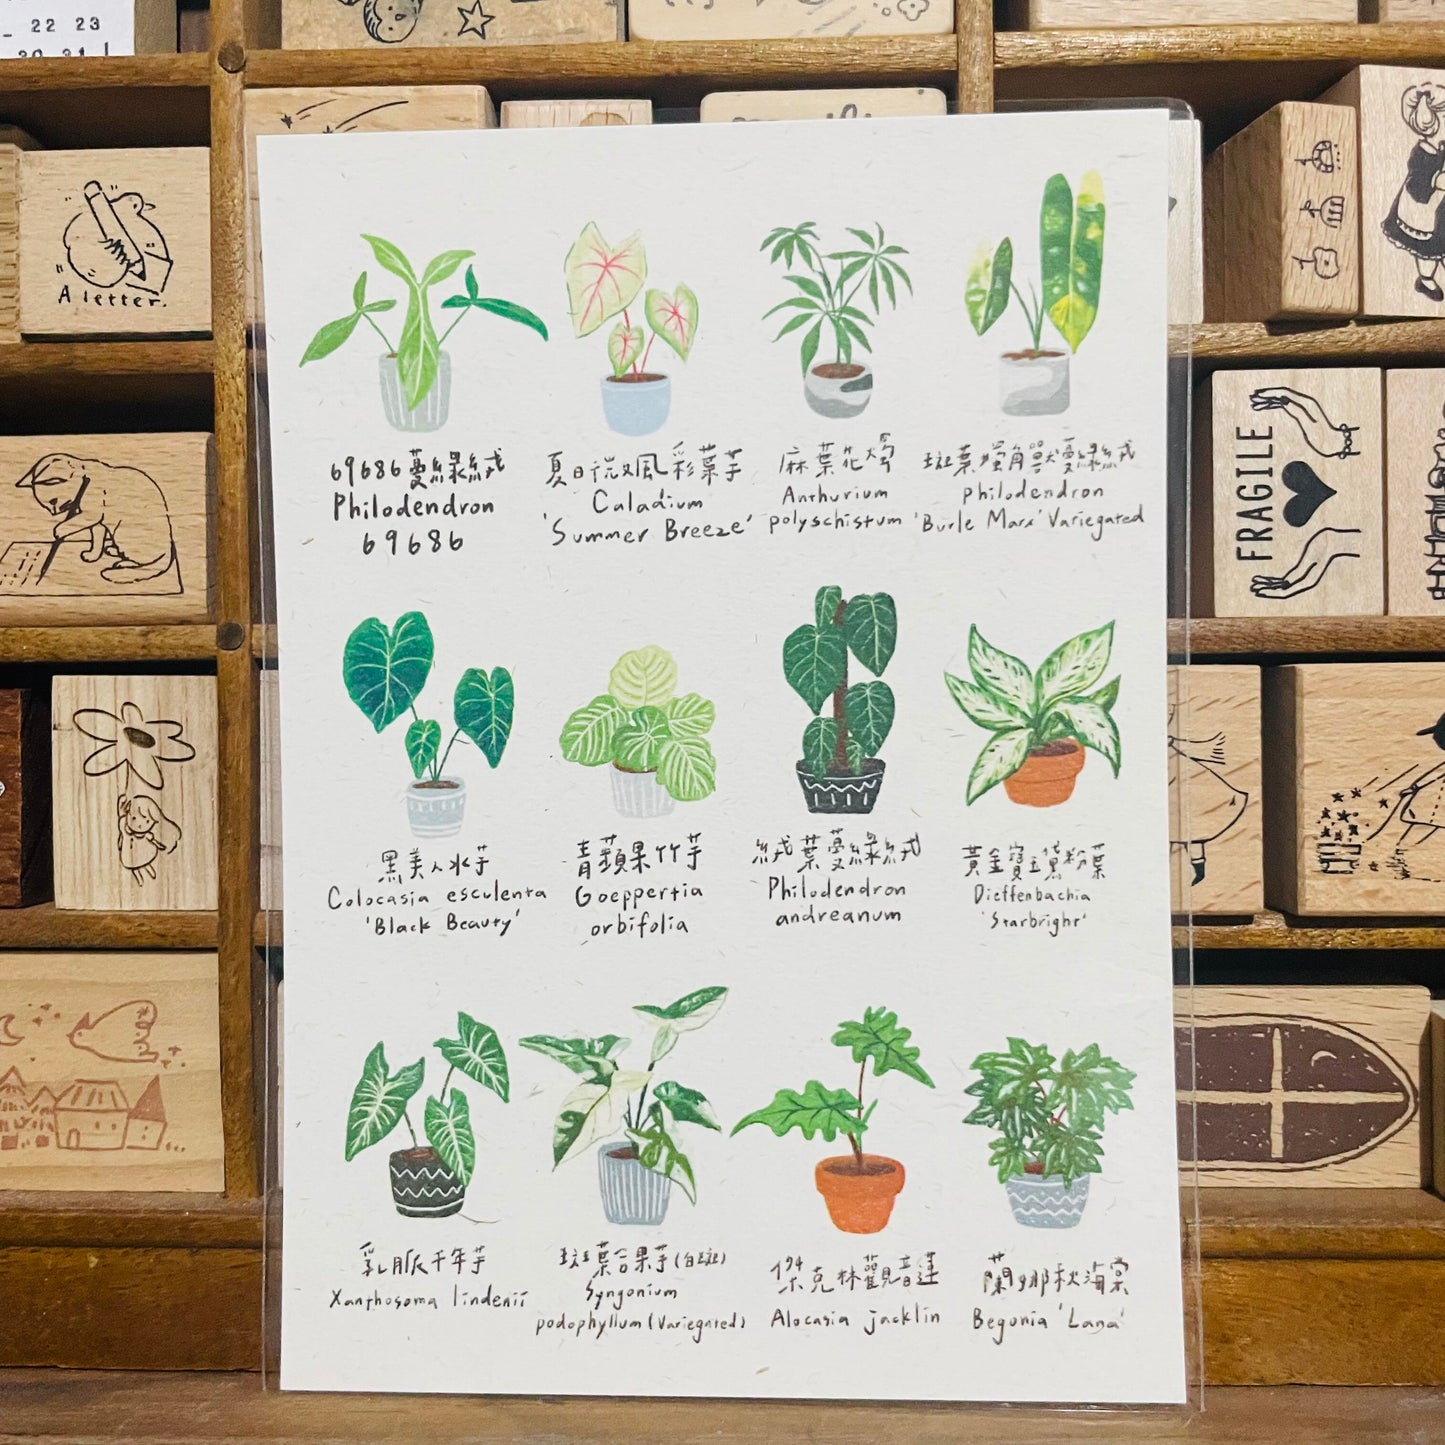 22 23
20 21
A letter.
FRAGILE
69686蔓綠絨
Philodendron
69686
夏日微風彩葉芋
Caladium
'Summer Breeze'
麻葉花燭
Anthurium
polyschistum
斑葉獨角獸蔓綠絨
philodendron
'Burle Marx' Variegated
黑美人水芋
Colocasia esculenta
'Black Beauty'
青蘋果竹芋
Goeppertia
orbifolia
絨葉蔓綠絨
Philodendron
andreanum
黃金寶玉黛粉葉
Dieffenbachia
'Starbright'
乳脈千年芋
Xanthosoma lindenii
斑葉合果芋(白斑)
Syngonium
podophyllum (Variegated)
傑克林觀音蓮
Alocasia jacklin
蘭娜秋海棠
Begonia 'Lana'